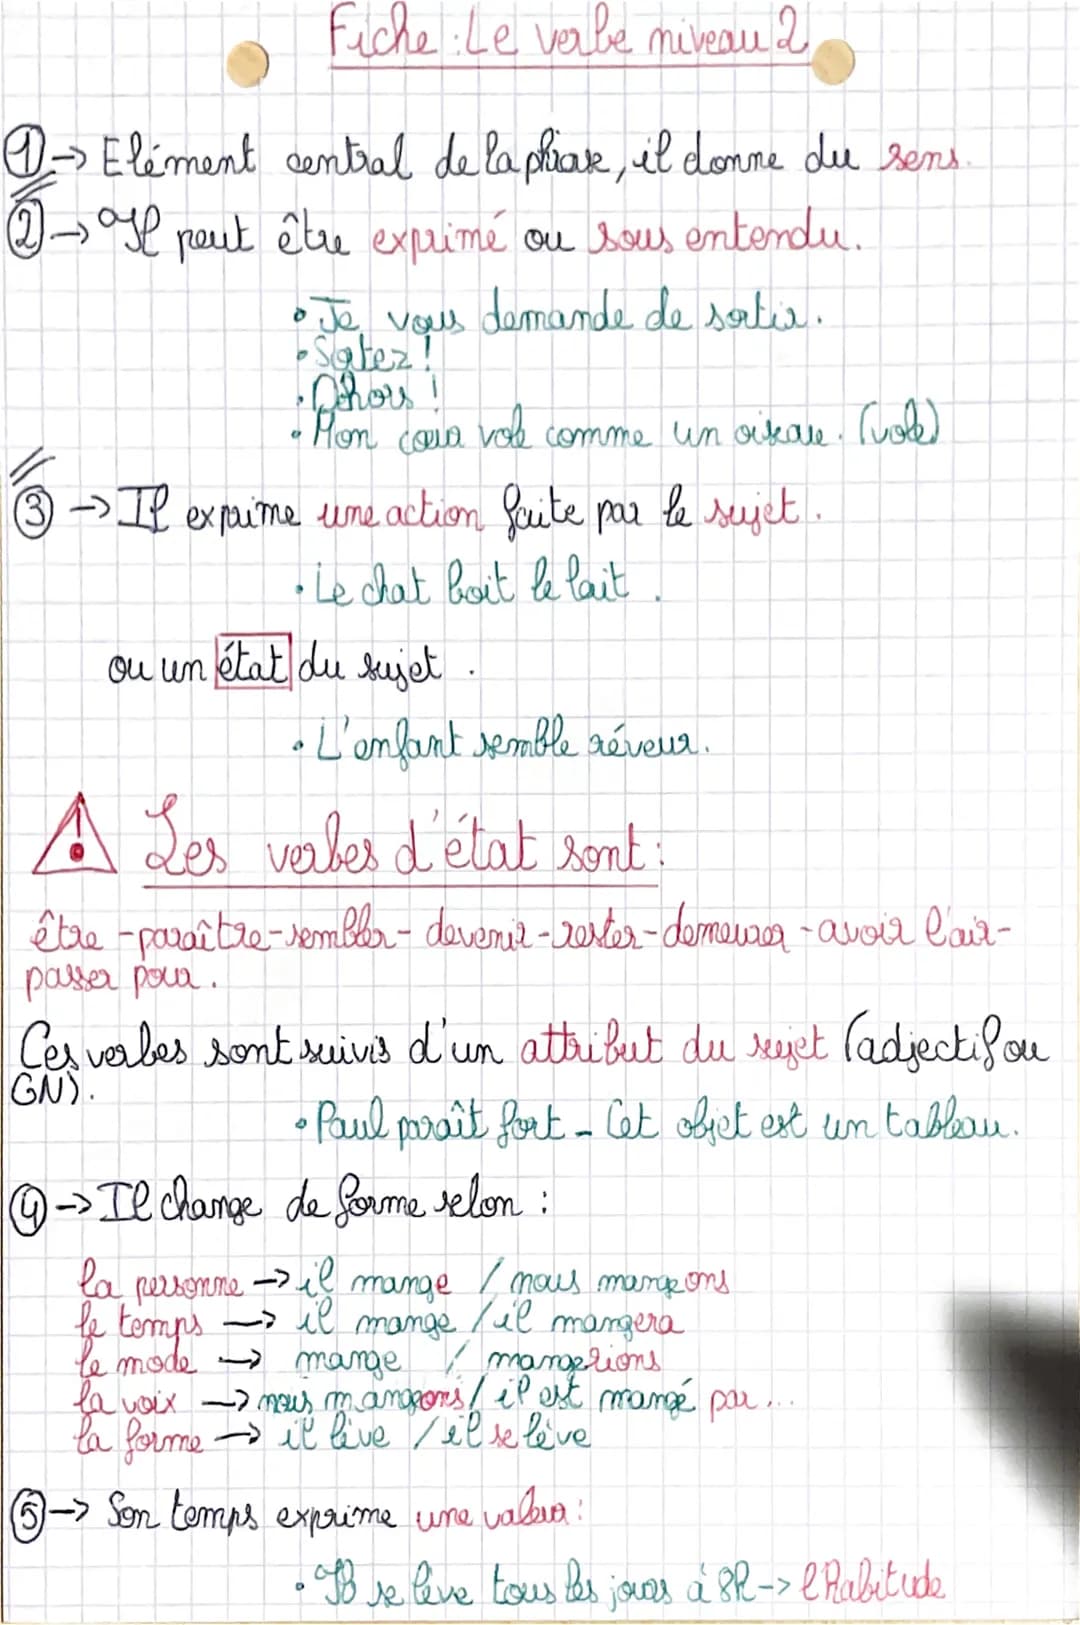 Fiche : Le verbe niveau 2
① -> Elément central de la phrase, il donne du sens.
② -> Il peut être exprimé ou sous entendu.
• Je vous demande de sortir.
• Sotez !
• Dehors !
• Mon cœur vole comme un oiseau. (vole)
③ -> Il exprime une action faite par le sujet.
• Le chat boit le lait.
ou un état du sujet.
• L'enfant semble rêveur.
Les verbes d'état sont :
être - paraître - sembler - devenir - rester - demeurer - avoir l'air -
passer pour.
Ces verbes sont suivis d'un attribut du sujet (adjectif ou
GN).
• Paul paraît fort - Cet objet est un tableau.
④ -> Il change de forme selon :
la personne -> il mange / nous mangeons
le temps -> il mange / il mangera
le mode -> mange / mangerions
la voix -> nous mangeons / il est mangé par...
la forme -> il lève / il se lève
⑤ -> Son temps exprime une valeur :
• Il se lève tous les jours à 8h -> l'habitude